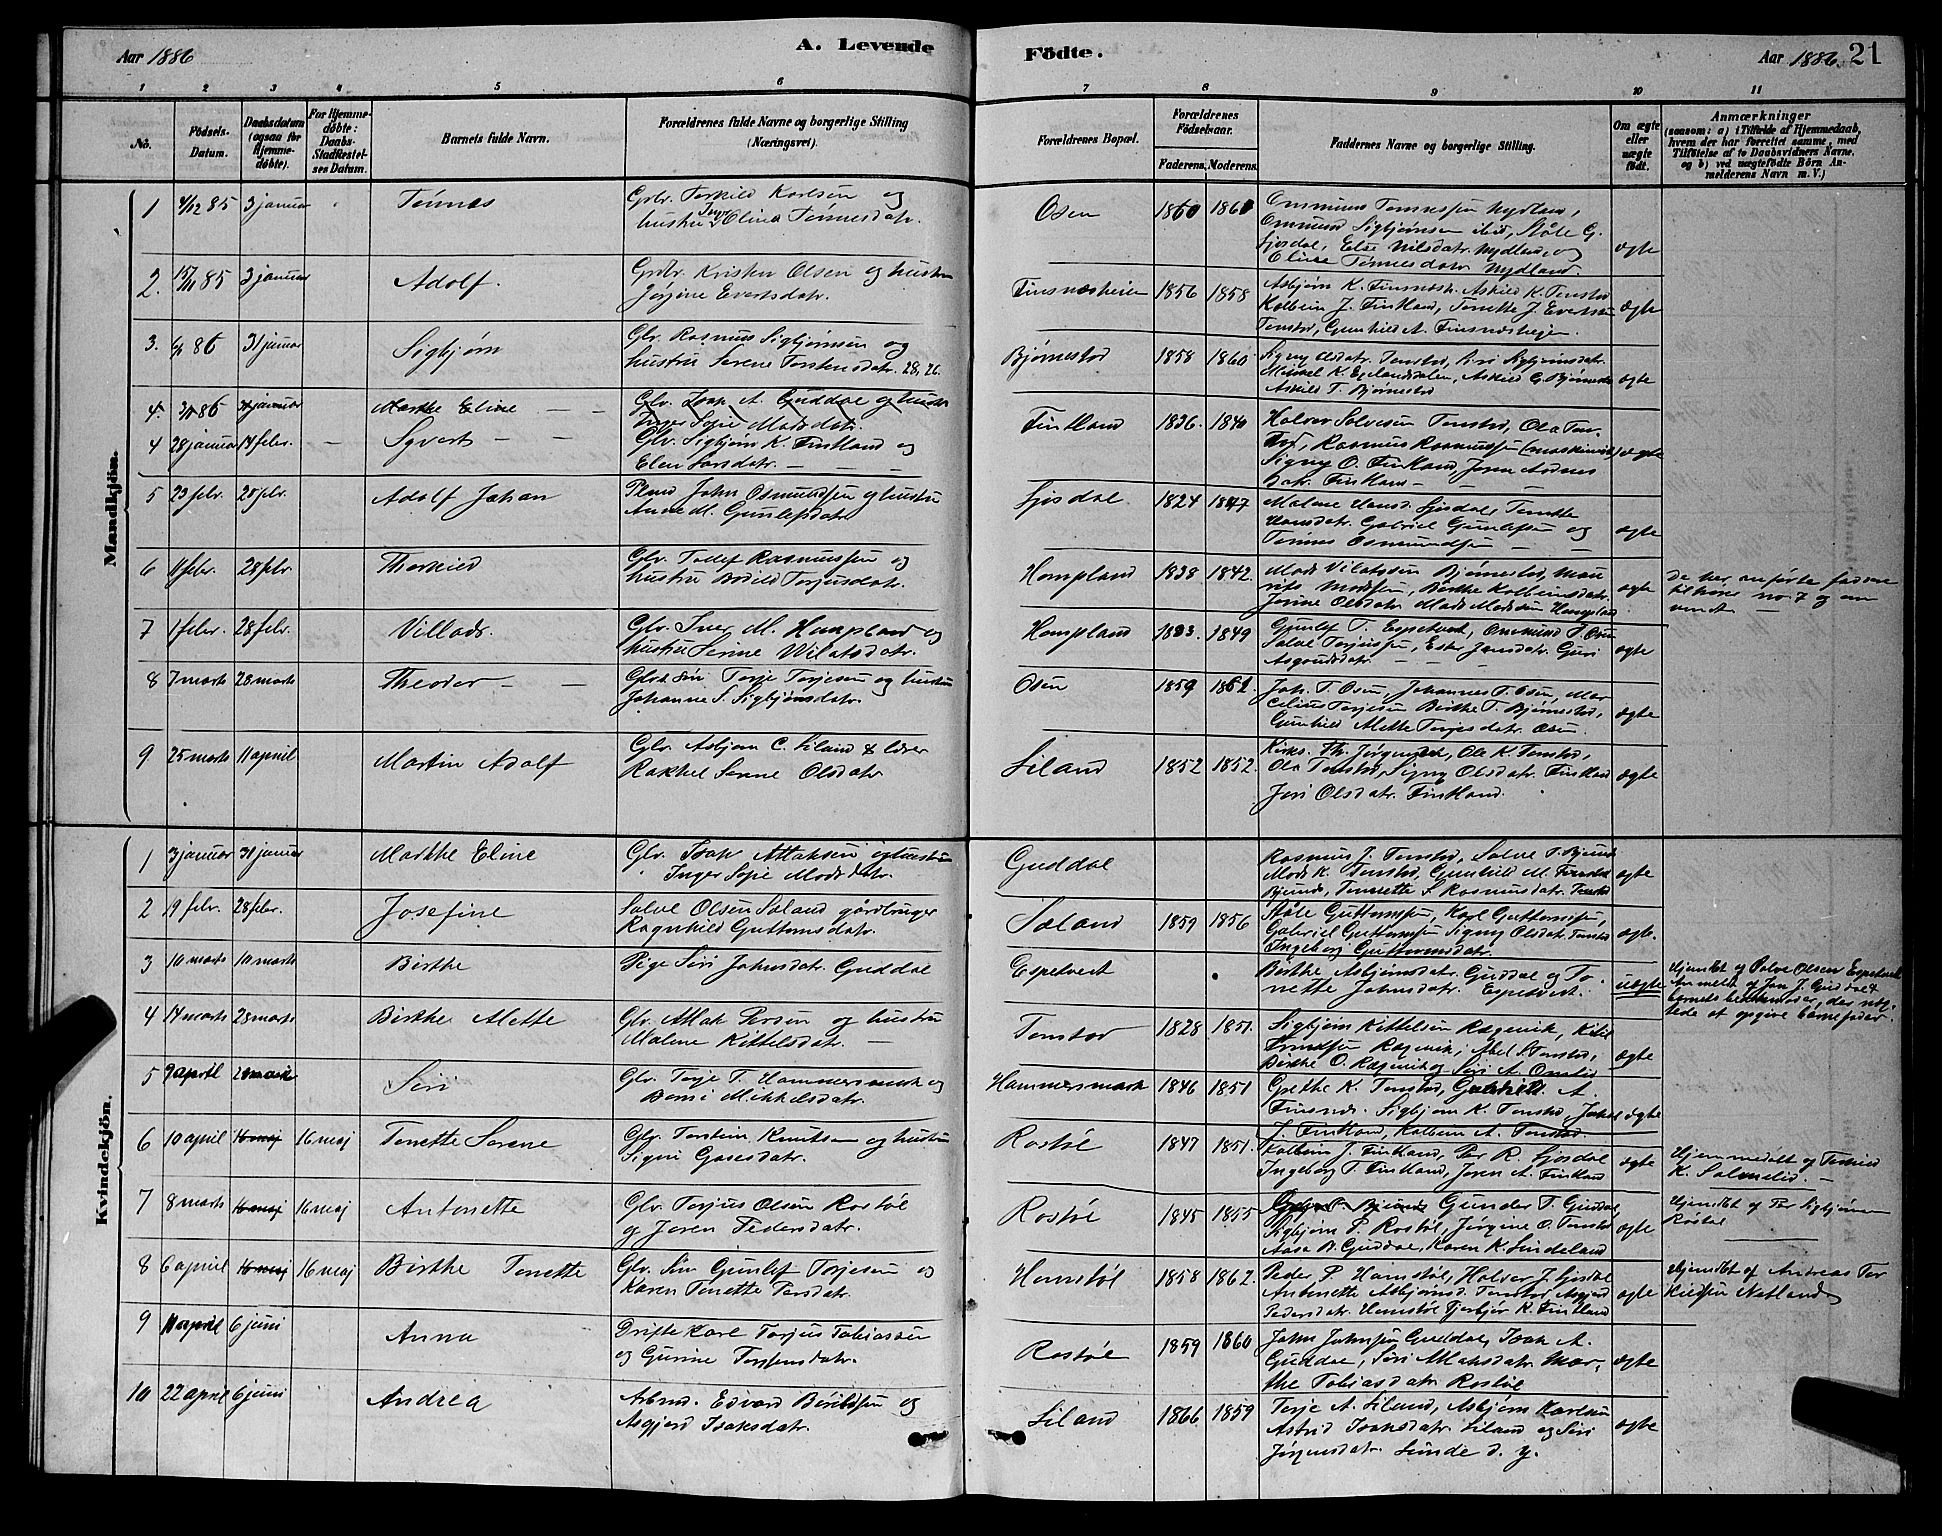 Aar 1886
A. Levende
Födte.
Aar 1886. 21
1 2 3 4 5 6 7 8 9 10 11
No.
Födsels-Datum.
Daabsdatum (ogsaa for Hjemme-døbte).
For Hjemme-døbte: Daabs-Stadfæstel-ses Datum.
Barnets fulde Navn.
Forældrenes fulde Navne og borgerlige Stilling (Næringsvei).
Forældrenes Bopæl.
Forældrenes Födselsaar.
Faderens. Moderens.
Faddernes Navne og borgerlige Stilling.
Om ægte eller uægte født.
Anmærkninger
(saasom: a) i Tilfælde af Hjemmedaab, hvem der har forrettet samme, med Tilföielse af to Daabsvidners Navne, og b) ved uægtefödte Börn Anmelderens Navn m. V.)
Mandkjön.
1 4/12 85 3 januar Tønnes Grbr. Torkild Karlsen og
hustru Elina Tønnesdatr. Osen 1860 1861 Ommund Tønnessen Nydland,
Ommund Sigbjørnsen ibid, Ståle G.
Sjosdal, Else Nilsdatr. Nydland og
Eline Tønnesdatr Nydland. ægte
2. 15/11 85 3 januar Adolf. Grbr. Kristen Olsen og hustru
Jørgine Evertsdatr. Finsnesheien 1856 1858 Asbjørn K. Finsnæsh. Askild K. Tonstad
Kolbein J. Fintland, Tonette J. Evertsen
Tonstad, Gunhild A. Finsnæsheien. ægte
3. 86 31 januar Sigbjørn Glv. Rasmus Sigbjørnsen og
hustru Serene Torstensdatr. 28, 26. Bjørnestad 1858 1860 Signy Olsdatr. Tonstad, Siri Sigbjørnsdatr.
Mikkel K. Egelandsdalen, Askild G. Bjørnestad
Askild T. Bjørnestad ægte
4. 3/1 86 31 januar Marthe Eline Glv. Isak A. Guddal og hustru
Inger Sofie Madsdatr.
4 28 januar 14 febr. Syvert Glv. Sigbjørn K. Fintland og
Elen Larsdatr. Fintland 1836. 1840 Halvor Salvesen Tonstad, Ola Ton-
stad, Rasmus Rasmussen (maskinist)
Signy O. Fintland, Joren Andreas
Datr. Fintland ægte
5 23 febr. 28 febr. Adolf Johan Plmd John Osmundsen og hustru
Anne M. Gunlefsdatr Sjosdal 1824 1847 Malene Hansd. Sjosdal, Tonette
Hansdatr. Gabriel Gunlefsen og
Tønnes Osmundsen ægte
6 febr. 28 febr. Thorkild Glv. Tollef Rasmussen og
hustru Bodild Torjusdatr. Hompland 1838 1842. Mads Vilatssen Bjørnestad, Mau-
rits Madssen, Birthe Kolbeinsdatr.
Jorine Olsdatr Mads Madssen Hompland ægte De her anførte faddere
tilhører no. 7 og om-
vendt —
7 1 febr. 28 febr. Villads. Glv. Iver M. Hompland og
hustru Serine Vilatsdatr. Hompland 1833. 1849 Gunlef T. Espetveit, Ommund T. Osen
Salve Torjussen, Ester Jansdatr. Guri
Asgoudsdatr. ægte
8 7 marts 28 marts Theodor Glvs Søn Torje Torjesen og hustru
Johanne S. Sigbjønsdatr. Osen 1859 1862 Joh. T. Osen, Johannes T. Osen, Mar-
celius Torjesen Birthe T. Bjørnestad,
Gunhild Alette Torjesdatr. Osen ægte
9 25 marts 11 april Martin Adolf Glv. Asbjørn C. Liland & lærer
Rakkel Serine Olsdatr Liland 1852 1852. Kirks. Th. Jørgensen, Ole K. Tonstad,
Ola Tonstad, Signy Olsdatr. Fintland
Jori Olsdatr. Fintland. ægte
Kvindekjön.
1 3 januar 31 januar Marthe Eline Glv. Isak Atlaksen og hustru
Inger Sofie Madsdatr. Guddal Rasmus J. Tonstad, Salve T. Bjunes
Mads K. Tonstad, Gunhild M.
Bjunes, Tonnette S. Rasmusdatr. ægte
2 19 febr. 28 febr. Josefine Salve Olsen Saland gårdbruger
Ragnhild Guttormsdatr. Saland 1859 1856 Ståle Guttormsen, Karl Guttormsen,
Gabriel Guttormsen Signy Olsdatr. Tonstad
Ingeborg Guttormsdatr. ægte.
3 10 marts 10 marts Birthe Pige Siri Johnsdatr. Guddal Espetveit Birthe Asbjørnsdatr. Guddal og To-
nette Johnsdatr. Espetveit. uægte Hjemdøbt af Salve Olsen Espetveit
Anmeldt af Jon J. Guddal &
barnets bestemoder, der næg-
tede at opgive barnefader.
4 14 marts 28 marts Birthe Alette Glv. Atlak Persen og hustru
Malene Kittelsdatr. Tonstad 1828 1851. Sigbjørn Kittelsen Rægevik, Kitil
Rægevik, Abel S. Tonstad,
Birthe O. Rægevik og Siri A. Omlid ægte
5 9 april 28 marts Siri Glv. Torje T. Hammersmark og
Berte Mikkelsdatr. Hammersmark 1846 1851 Grethe K. Tonstad, Gabriell A.
Finsnes. Sigbjørn K. Tonstad, Jakob
J. Fintland, Kolbein A. Tonstad. ægte
6 10 april 16 maj 16 maj Tonette Serene Glv. Torstein Knutsen og hustru
Signi Gasesdatr. Rostøl 1847 1851. Kolbein J. Fintland, Per R. Sjosdal
Ingeborg T. Fintland, Joren A. Fintland ægte Hjemmedøbt af
K. Salmelid. —
7 8 marts 16 maj 16 maj Antonette Glv. Torjus Olsen Rostøl
og Joren Pedersdatr. Rostøl 1845 1855 Gunder T. Guddal,
Sigbjørn P. Rostøl, Jørgine O. Tonstad
Aasa B. Guddal, Karen K. Sindeland ægte Hjemdøbt af Per Sigbjørnsen
Røstøl
8 6 april 16 maj 16 maj Birthe Tonette Glv. Søn Gunlef Torjesen og
Karen Tonette Persdatr. Homstøl 1858 1862. Peder P. Homstøl, Halvor J. Sjosdal
Antonette Asbjørnsd. Tonstad Asgjerd
Pedersdatr. Homstøl Tjerbjør K. Fintland ægte Hjemdøbt af Andreas Tor-
kildsen Netland
9 11 april 6 juni Anna Drifte Karl Torjus Tobiassen
og Gurine Torjesdatr. Rostøl 1859 1860 John Johnsen Guddal, Isak A.
Guddal, Siri Atlaksdatr. Mar-
the Tobiasdatr Rostøl ægte
10 22 april 6 juni Andrea Arbmd. Edvard Berildsen og
Asgjerd Isaksdatr. Liland 1866 1859 Terje A. Liland, Asbjørn Karlsen
Astrid Isaksdatr. Liland og Siri
Jørgensdatr. Linde d. y. ægte